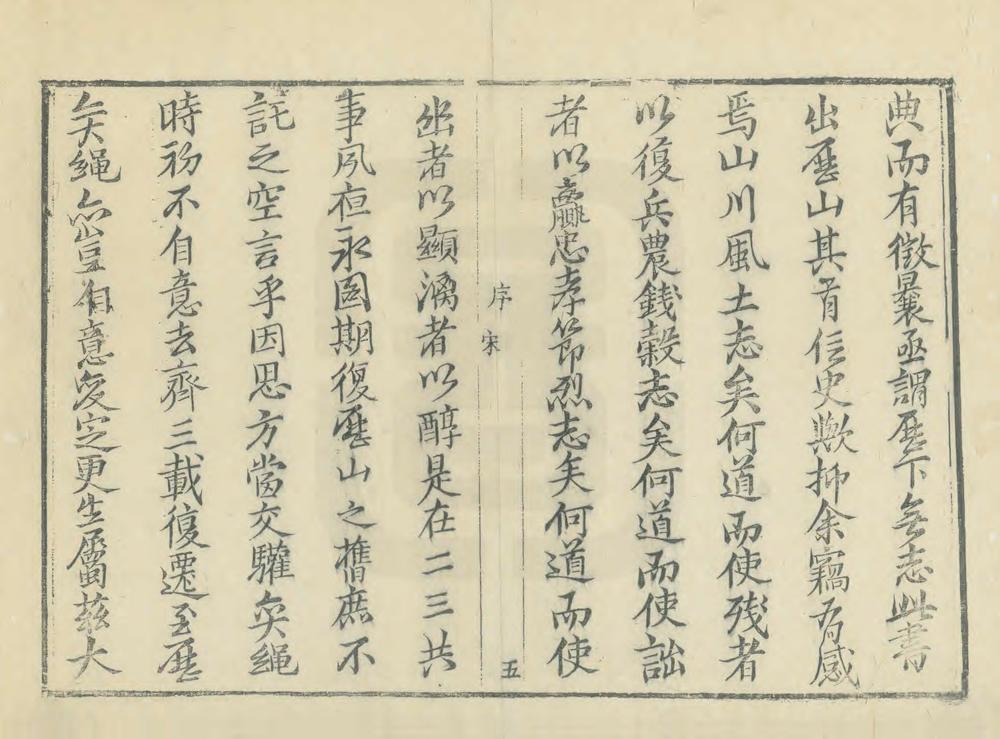 典而有徵曩亟謂歷下無志此書
出歷山其有信史歟抑余竊有感
焉山川風土志矣何道而使殘者
以復兵農錢穀志矣何道而使詘
者以贏忠孝節烈志矣何道而使
序 宋
五
幽者以顯漓者以醇是在二三共
事夙夜永圖期復歷山之舊庶不
託之空言乎因思方當交驩奕繩
時初不自意去齊三載復遷至歷
奕繩亦豈自意定更生屬茲大